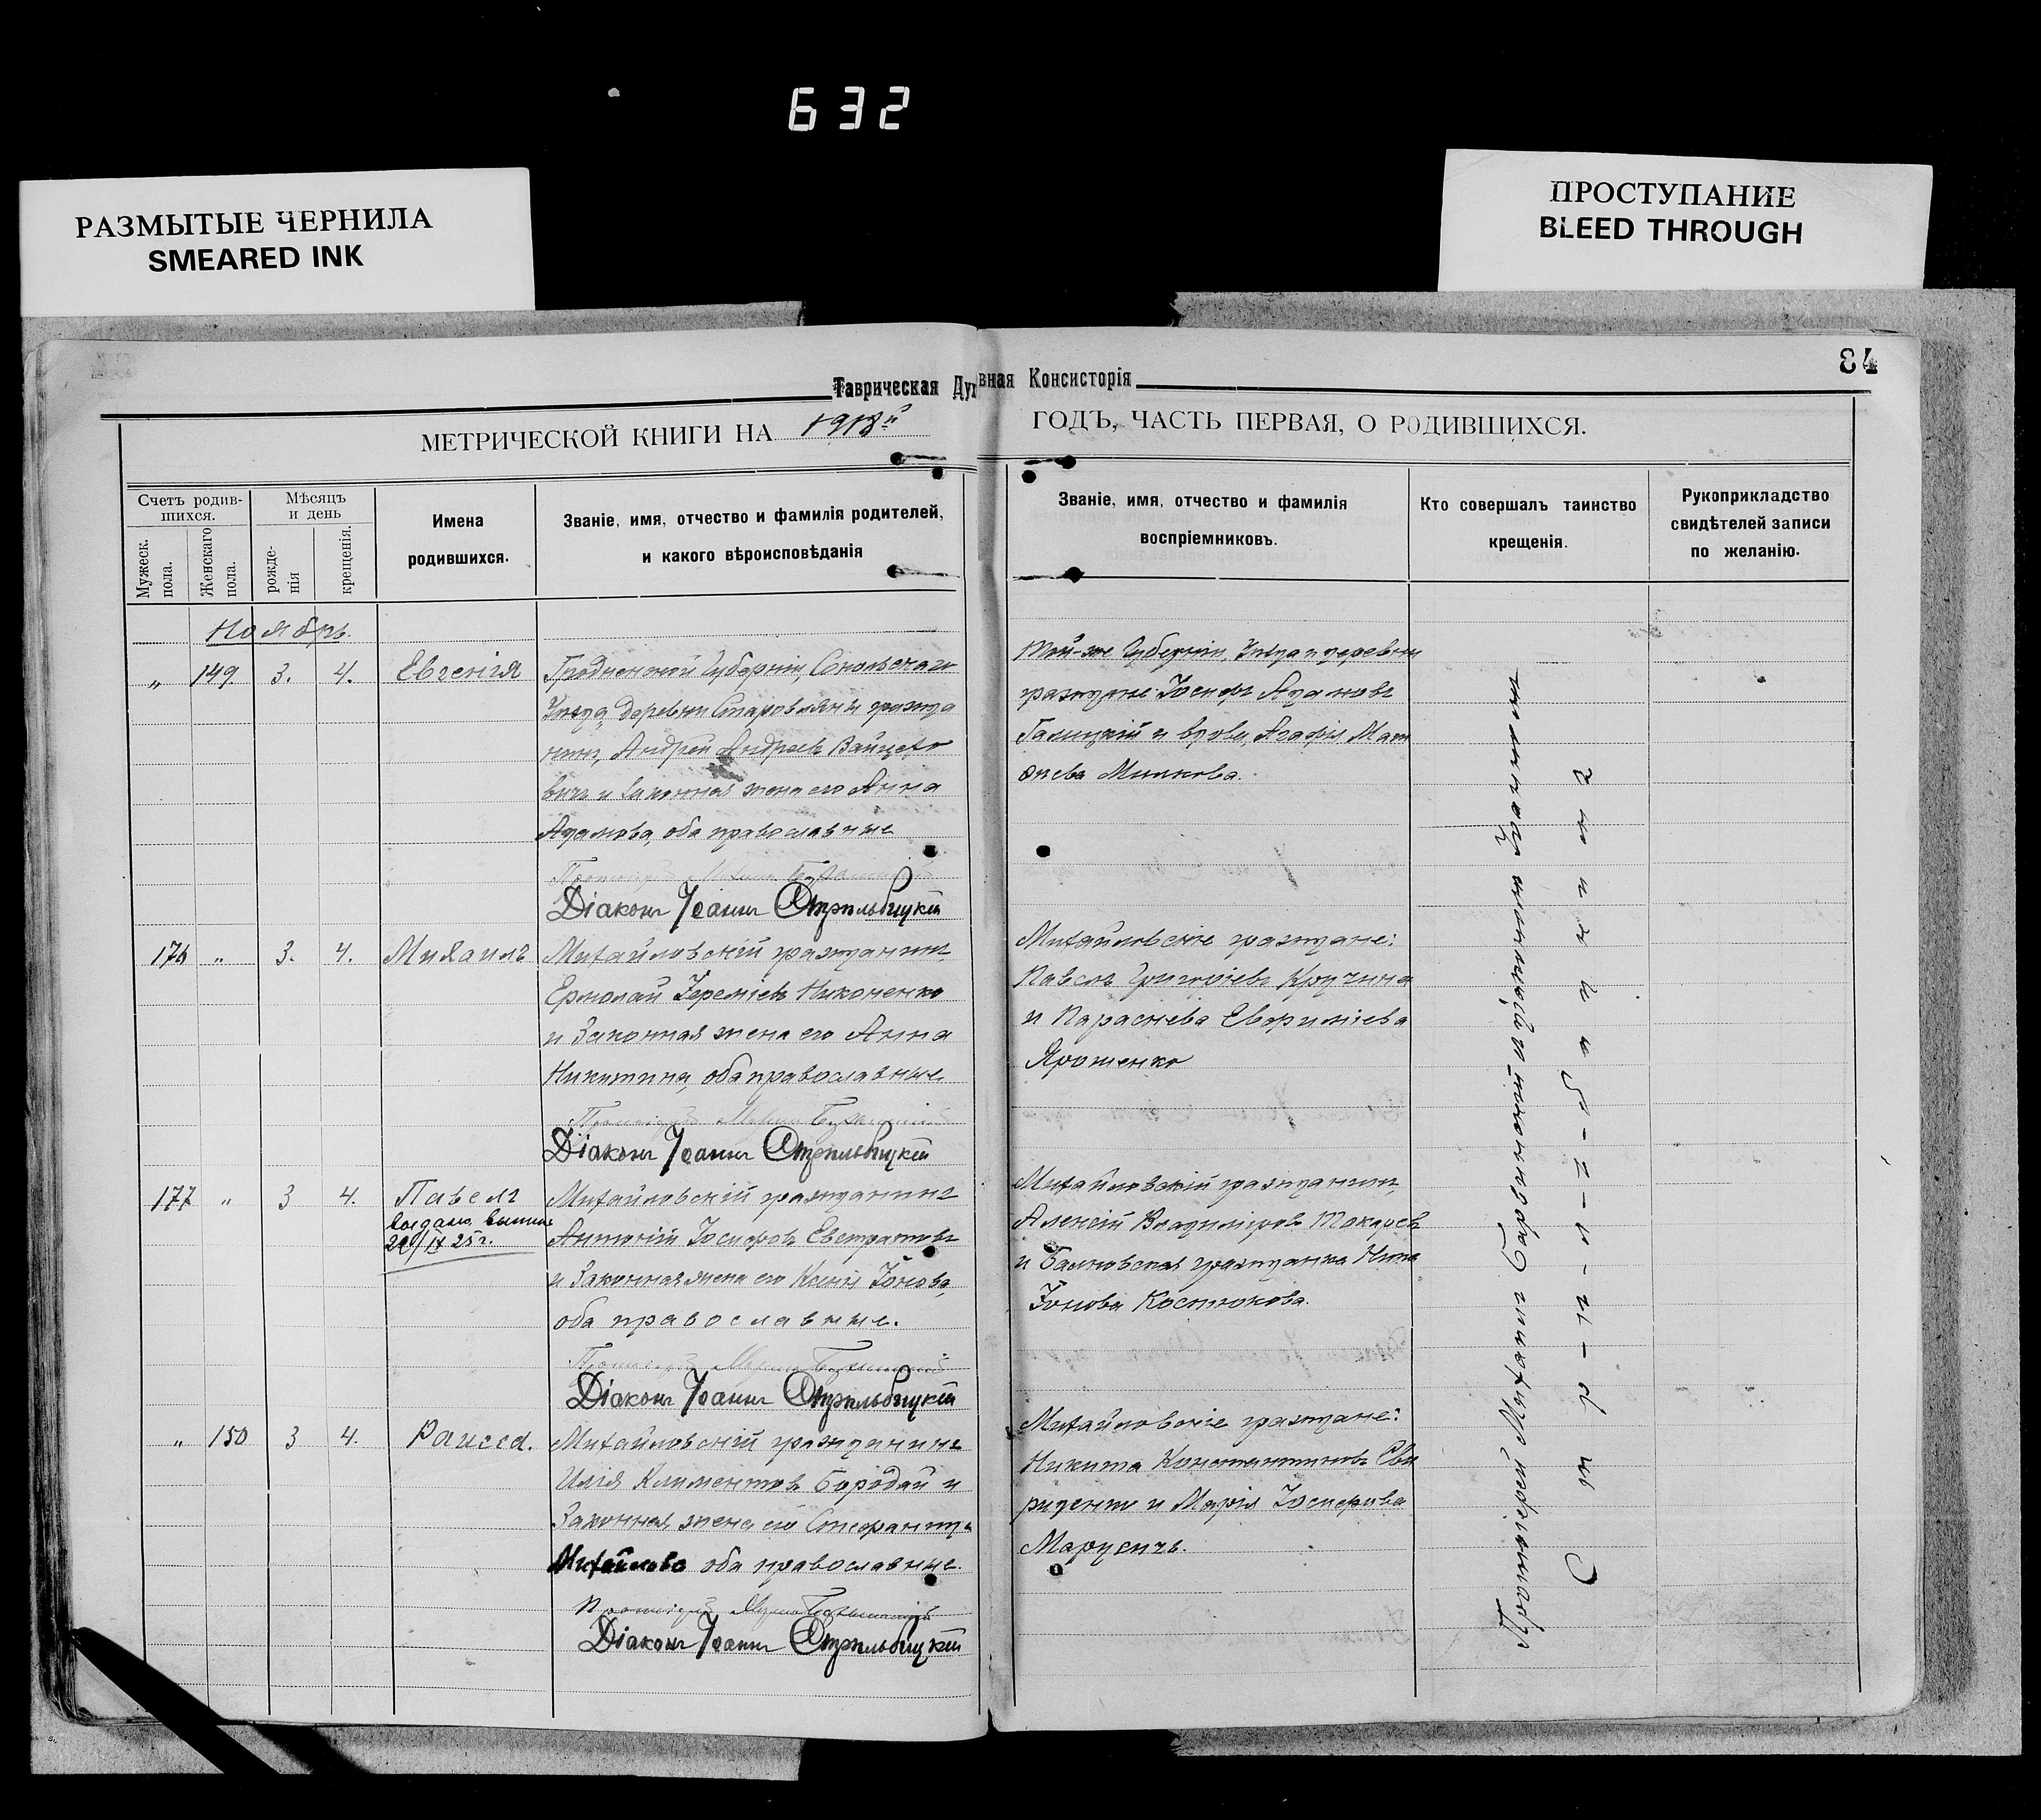 632
РАЗМЫТЫЕ ЧЕРНИЛА
SMEARED INK
ПРОСТУПАНИЕ
BLEED THROUGH
84
Таврическая Духовная Консисторія
МЕТРИЧЕСКОЙ КНИГИ НА 1918й ГОДЪ, ЧАСТЬ ПЕРВАЯ, О РОДИВШИХСЯ.
Счетъ родив-
шихся.
Мужеск.
пола.
Женскаго
пола.
Мѣсяцъ
и день
рожде-
нія
крещенія.
Имена
родившихся.
Званіе, имя, отчество и фамилія родителей,
и какого вѣроисповѣданія
Званіе, имя, отчество и фамилія
воспріемниковъ.
Кто совершалъ таинство
крещенія.
Рукоприкладство
свидѣтелей записи
по желанію.
Ноябрь.
„ 149 3. 4. Евгенія
Гродненской Губерніи, Сокольскаго
Уѣзда, деревни Старовляны гражда
нинъ, Андрей Андреевъ Вайцехо
вичъ и Законная жена его Анна
Адамова, оба православные
Протоіерей
Діаконъ Іоаннъ Стрѣльбицкій
Той-же Губерніи, Уѣзда и деревни
граждане: Іосифъ Адамовъ
Галицкій и вдова, Агафія Мат
ѳеева
176 „ 3. 4. Михаилъ
Михайловскій гражданинъ
Ермолай Іереміевъ Никоненко
и Законная жена его Анна
Никитина, оба православные
Протоіерей
Діаконъ Іоаннъ Стрѣльбицкій
Михайловскіе граждане:
Павелъ Григоріевъ Кручина
и Параскева Евфиміева
Ярошенко
177 „ 3 4. Павелъ
выдана выпись
20/IX 25 г.
Михайловскій гражданинъ
Антоній Іосифовъ Евстратовъ
и Законная жена его Ксенія Іонова,
оба православные.
Протоіерей
Діаконъ Іоаннъ Стрѣльбицкій
Михайловскій гражданинъ
Алексій Владиміровъ Токаревъ
и Балковская гражданка Нина
Іонова Костюкова.
„ 150 3 4. Раисса.
Михайловскій гражданинъ
Илія Климентовъ Бородай и
Законная жена его Стефанида
Михайлова оба православные.
Протоіерей
Діаконъ Іоаннъ Стрѣльбицкій
Михайловскіе граждане:
Никита Константиновъ Сви
риденко и Марія Іосифова
Марценичъ.
Протоіерей Михаилъ и діаконъ Іоаннъ
С т р ѣ л ь б и ц к і й